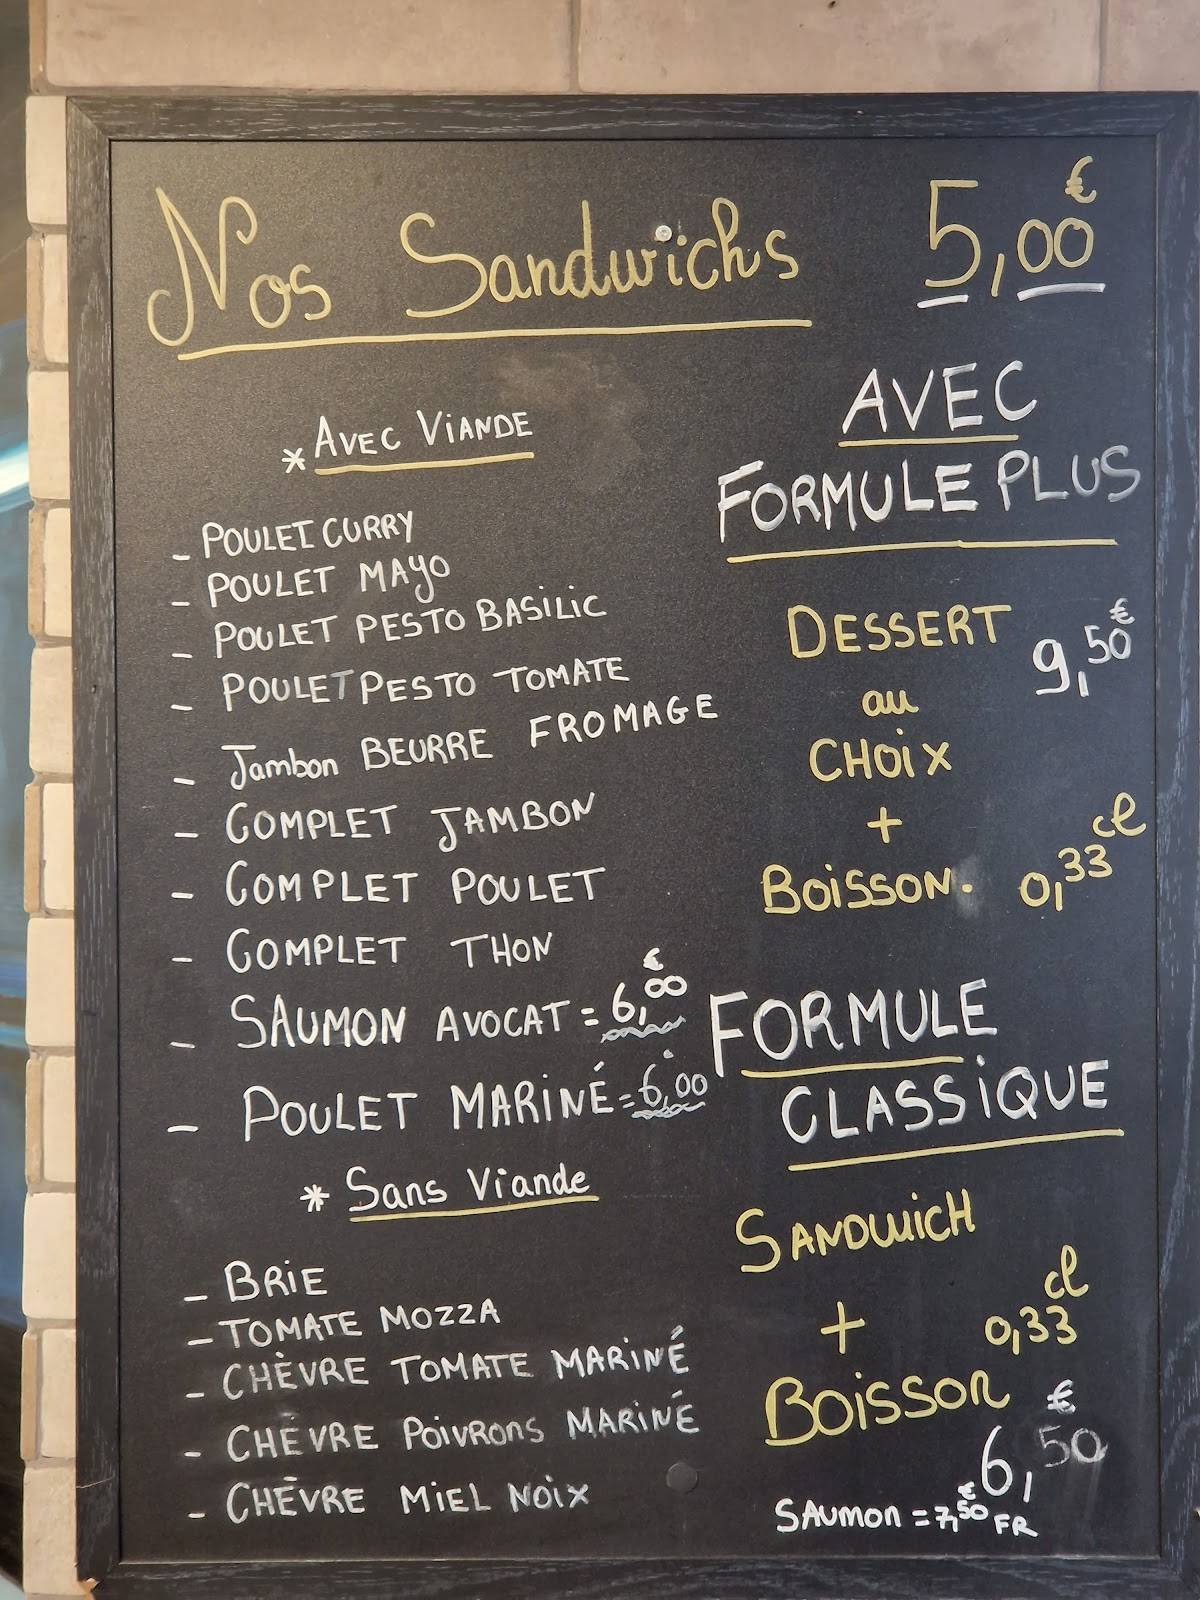 Nos Sandwichs 5,00€
* AVEC VIANDE
- POULET CURRY
- POULET MAYO
- POULET PESTO BASILIC
- POULET PESTO TOMATE
- Jambon BEURRE FROMAGE
- COMPLET JAMBON
- COMPLET POULET
- COMPLET THON
- SAUMON AVOCAT = 6,00€
- POULET MARINÉ = 6,00
* Sans Viande
- BRIE
- TOMATE MOZZA
- CHÈVRE TOMATE MARINÉ
- CHÈVRE POIVRONS MARINÉ
- CHÈVRE MIEL NOIX
AVEC
FORMULE PLUS
DESSERT 9,50€
au
CHOIX
+
BOISSON. 0,33 cl
FORMULE
CLASSIQUE
SANDWICH
+ 0,33 cl
BOISSON
6,50€
SAUMON = 7,50€ FR